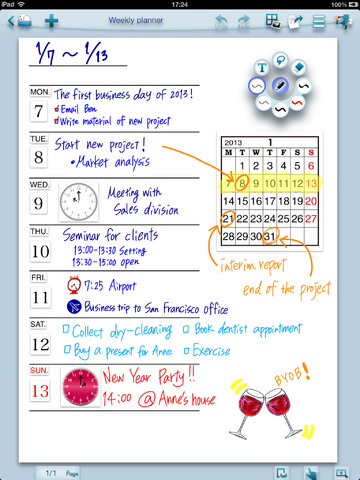 iPad
17:24
Weekly planner
1/7 ~ 1/13
MON.
7
The first business day of 2013!
Email Ben
Write material of new project
TUE.
8
Start new project!
• Market analysis
WED.
9
Meeting with
Sales division
THU.
10
Seminar for clients
13:00-13:30 Setting
13:30-15:00 Open
FRI.
11
7:25 Airport
Business trip to San Francisco office
SAT.
12
Collect dry-cleaning
Book dentist appointment
Buy a present for Anne
Exercise
SUN.
13
New Year Party!!
14:00 @ Anne's house
T
2013 1
M T W T F S S
1 2 3 4 5 6
7 8 9 10 11 12 13
14 15 16 17 18 19 20
21 22 23 24 25 26 27
28 29 30 31
interim report
end of the project
BYOB!
1/1 Page